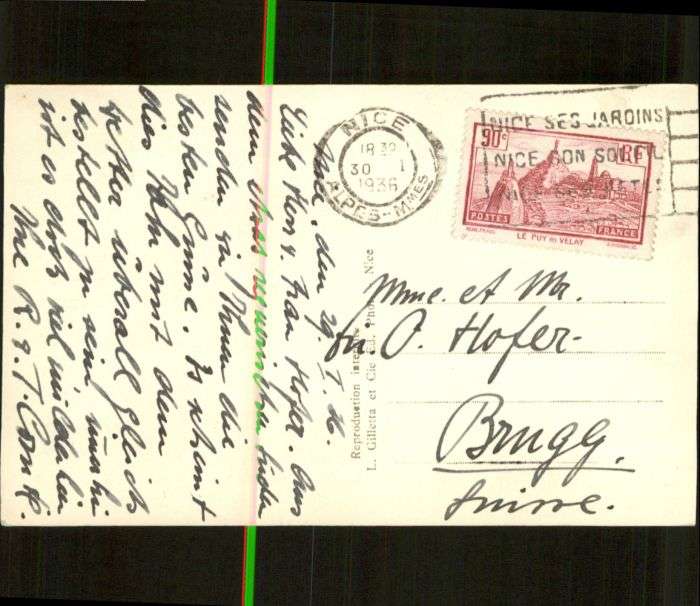 NICE
18 30
30 I
1936
ALPES-MMES
NICE SES JARDINS
NICE SON SOLEIL
90c
RF
POSTES
FRANCE
LE PUY EN VELAY
den 29. I. 36.
Liebe Herr & Frau Hofer. Aus
dem etwas regnerischen Süden
senden wir Ihnen die
besten Grüsse. Es scheint
dies Jahr mit dem
Wetter überall gleich
bestellt zu sein
ist es doch viel milder hier
Ihre R. & T.
Reproduction interdite
L. Gilletta et Cie Ed. Phot. Nice
Mme. et Mr.
O. Hofer-
Brugg.
Suisse.